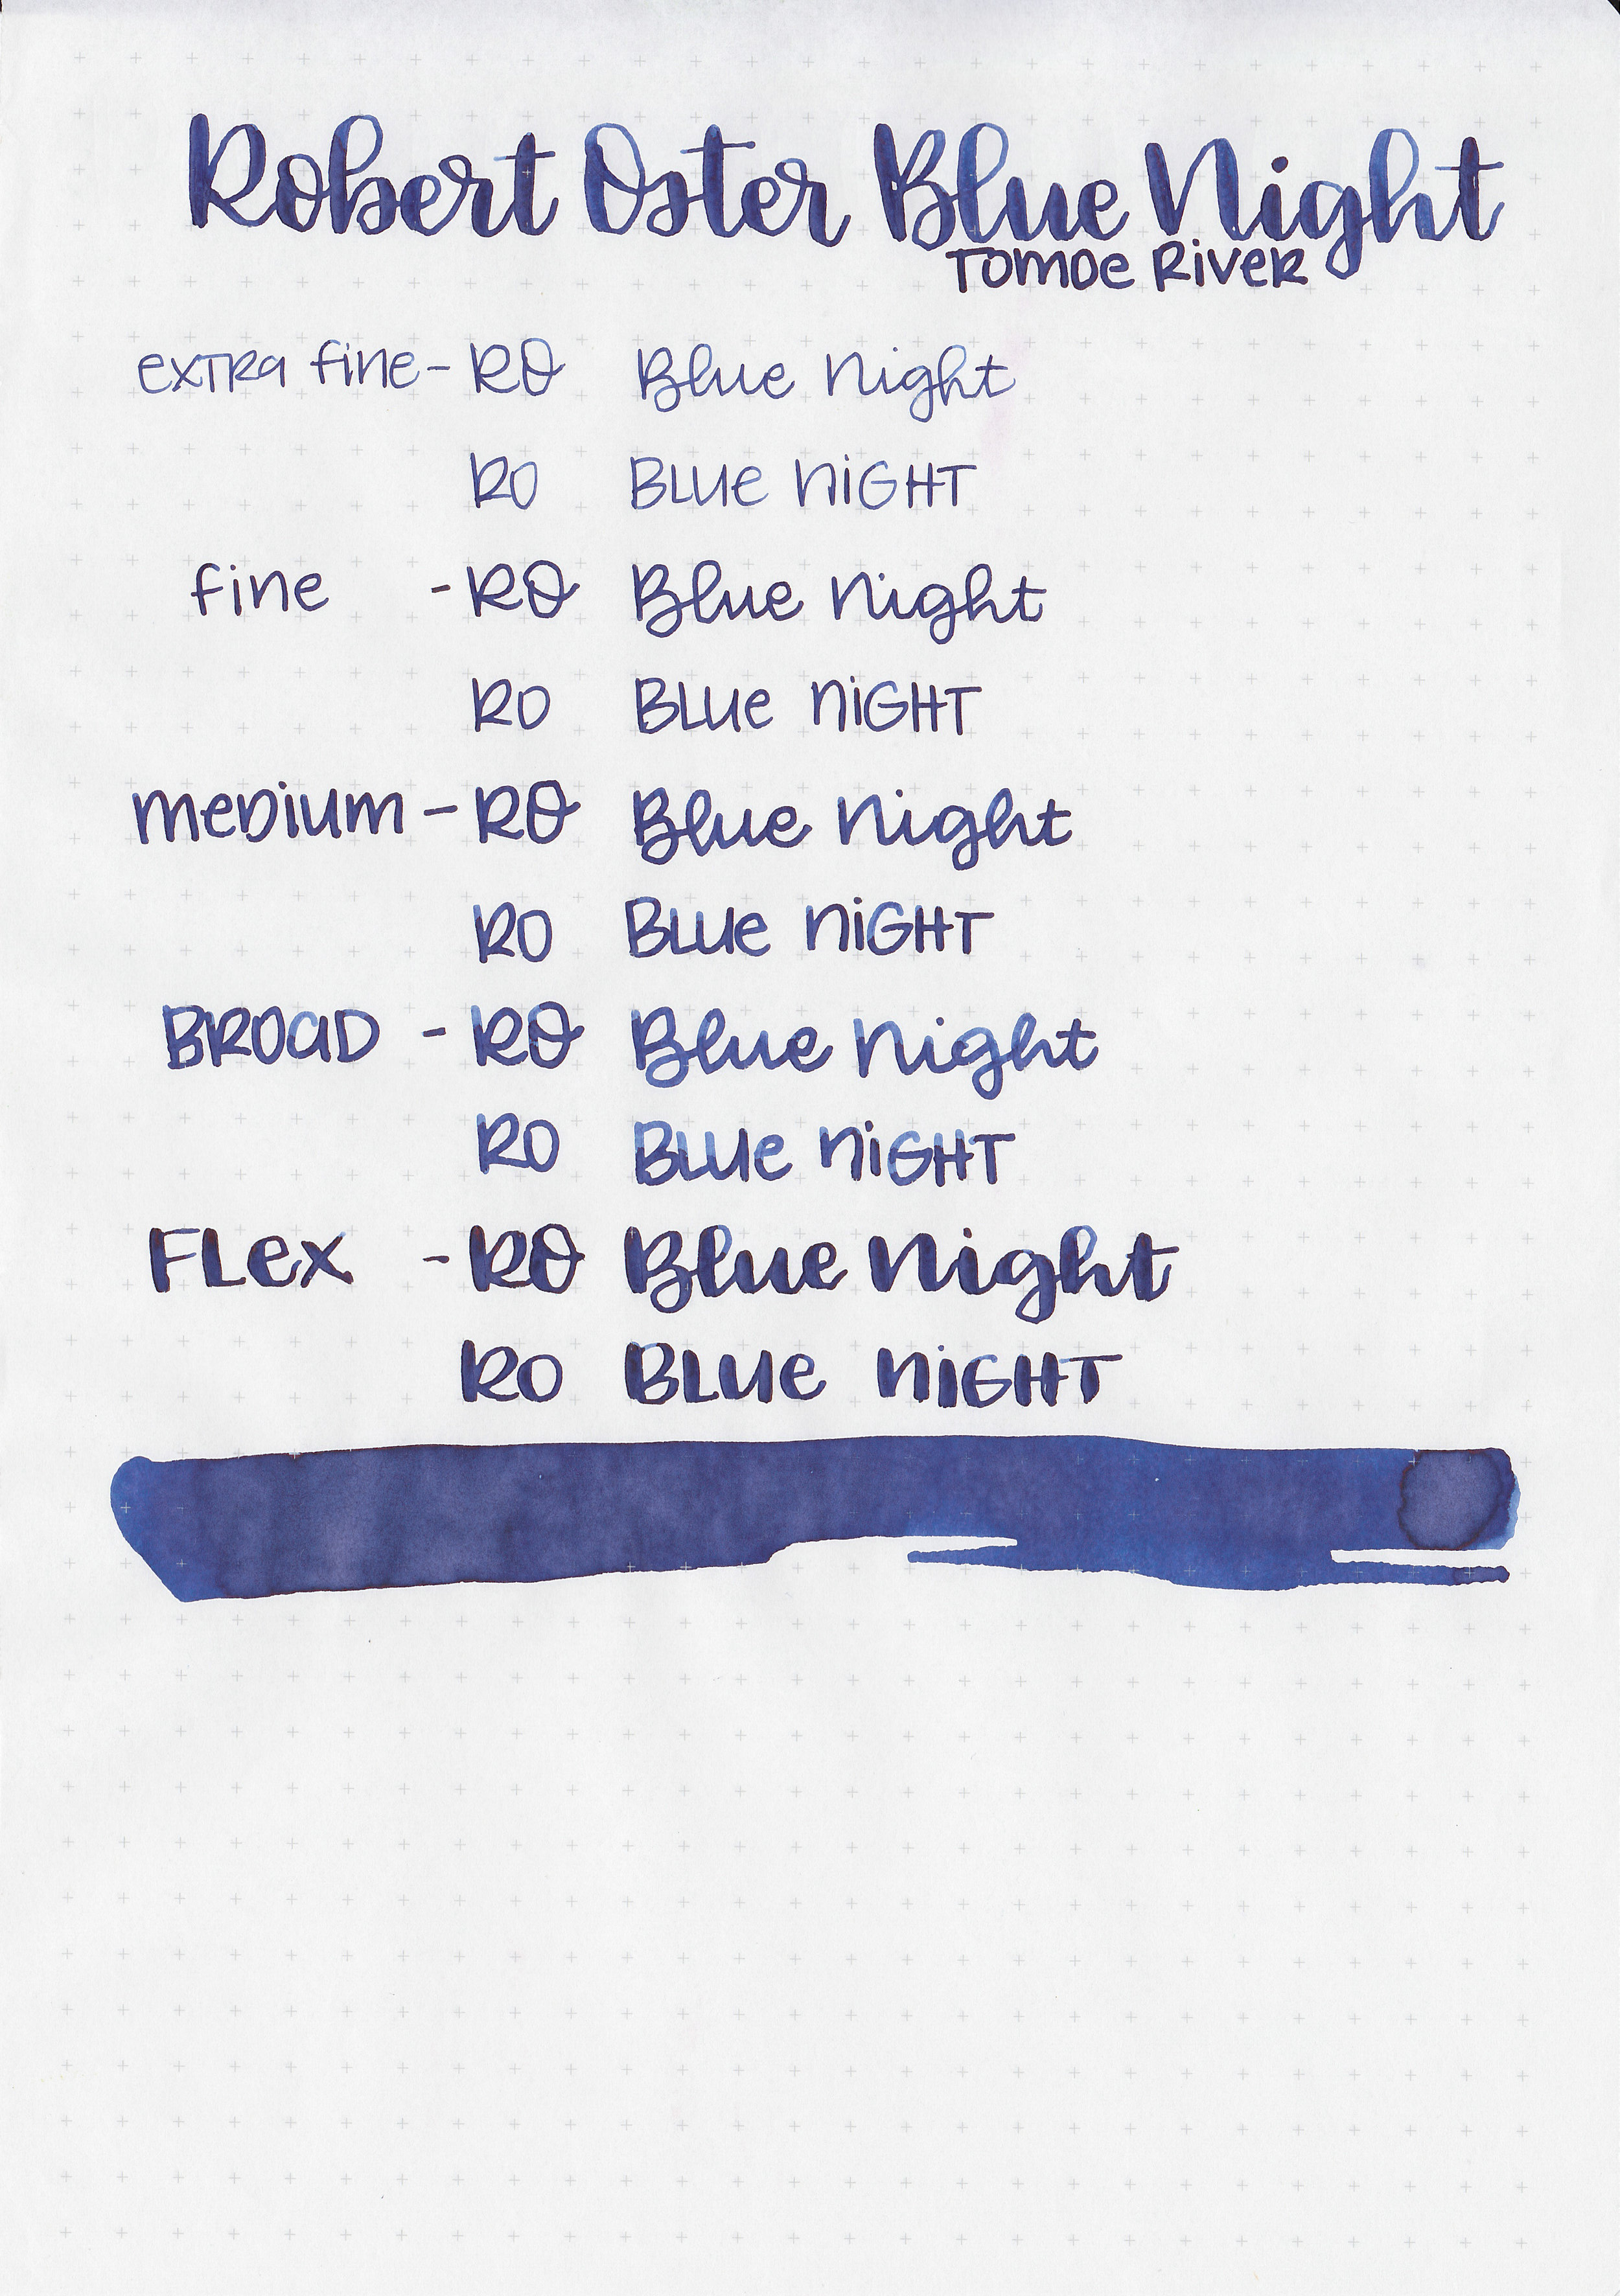 Robert Oster Blue Night
Tomoe River
extra fine - RO Blue Night
RO Blue Night
fine - RO Blue Night
RO Blue Night
medium - RO Blue Night
RO Blue Night
Broad - RO Blue Night
RO Blue Night
Flex - RO Blue Night
RO Blue Night